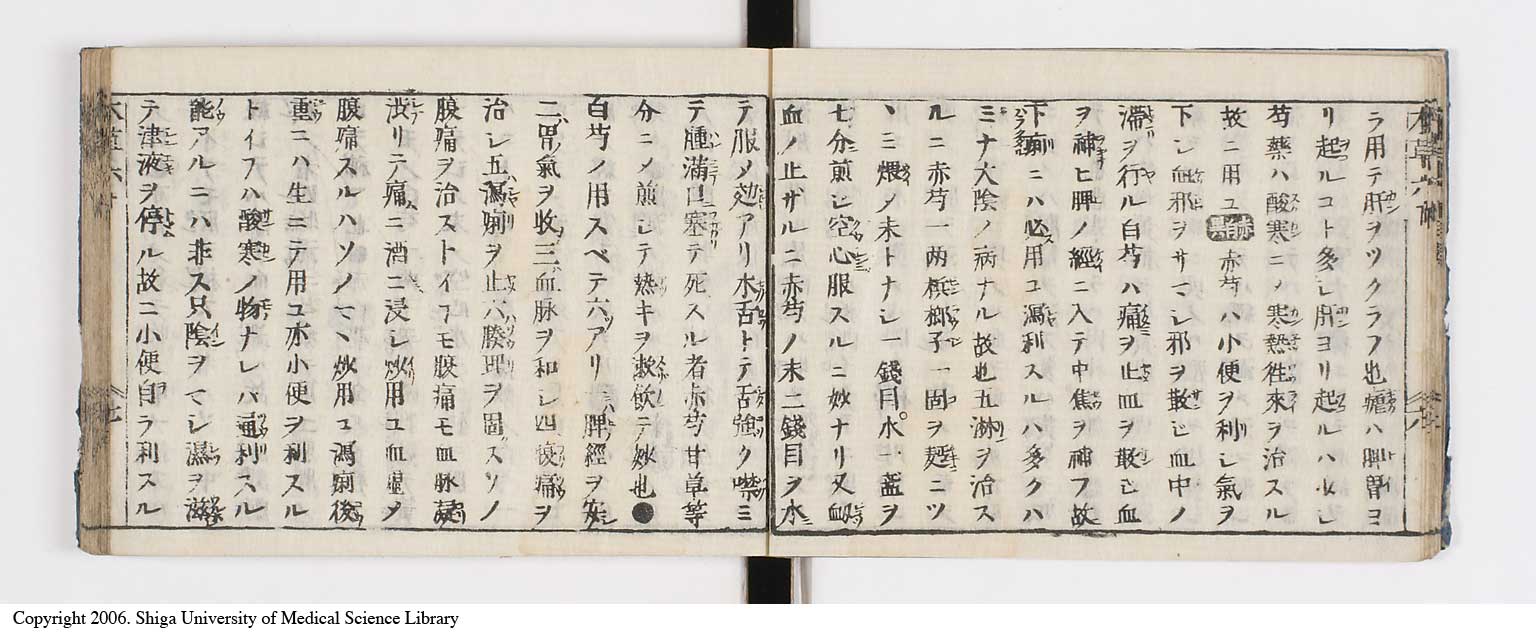 ラ用テ肝ヲツクラフ也瘧ハ脾胃ヨ
リ起ルコト多シ肝ヨリ起ルハ少シ
芍藥ハ酸寒ニノ寒熱徃來ヲ治スル
故ニ用ユ 赤芍ハ小便ヲ利シ氣ヲ
下シ血邪ヲサマシ邪ヲ散シ血中ノ
滯ヲ行ル白芍ハ痛ヲ止血ヲ散シ血
ヲ補ヒ脾ノ經ニ入テ中焦ヲ補フ故
下痢ニハ必用ユ瀉利スルハ多クハ
ミナ大陰ノ病ナル故也五淋ヲ治ス
ルニ赤芍一两梹榔子一箇ヲ麪ニツ
ヽミ煨メ末トナシ一錢目水一盞ヲ
七分煎シ空心服スルニ妙ナリ又血
血ノ止ザルニ赤芍ノ末二錢目ヲ水
テ服メ効アリ木舌トテ舌強ク噤ミ
テ腫滿口塞テ死スル者赤芍甘草等
分ニメ煎シテ熱キヲ漱飲テ妙也●
白芍ノ用スベテ六アリ一ハ脾經ヲ安シ
二ハ胃氣ヲ收三ハ血脉ヲ和シ四ハ腹痛ヲ
治シ五ハ瀉痢ヲ止六ハ腠理ヲ固スソノ
腹痛ヲ治ストイヘモ腹痛モ血脉
渋リテ痛ニ酒ニ浸シ炒用ユ血虚メ
腹痛スルハソノマヽ炒用ユ瀉痢後
重ニハ生ニテ用ユ亦小便ヲ利スル
トイフハ酸寒ノ物ナレバ通利スル
能アルニハ非ス只陰ヲマシ濕ヲ滋
テ津液ヲ停ル故ニ小便自ラ利スル
Copyright 2006. Shiga University of Medical Science Library